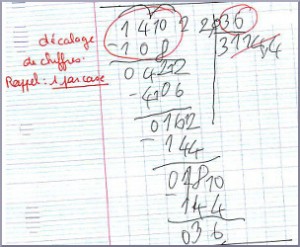 décalage
de chiffres.
Rappel : 1 par case
1 4 10 2 2 36
- 1 0 8
0 4 2 2
0 1 6 2
- 1 4 4
0 1 8 10
- 1 4 4
0 3 6